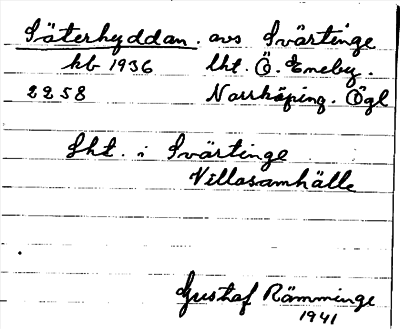 Säterhyddan. avs Svärtinge
hb 1936 lht. Ö. Eneby.
2258 Norrköping. Ögl
Lht. i Svärtinge
Villasamhälle
Gustaf Rämminge
1941